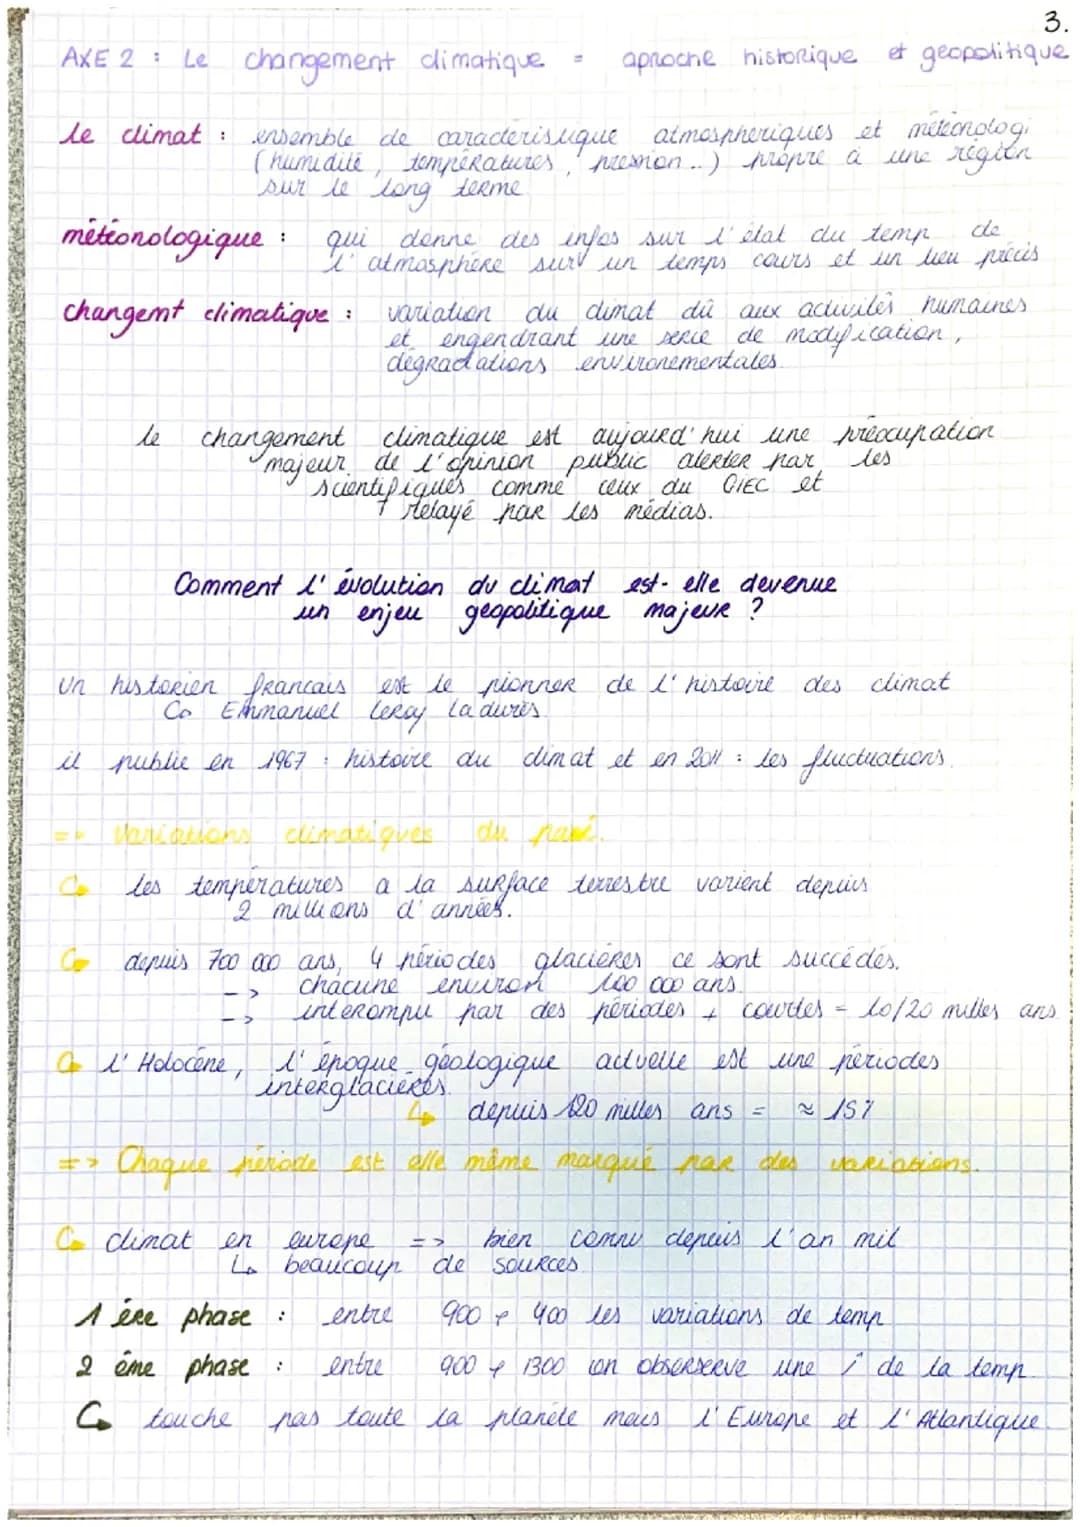 3.
AXE 2 : Le changement climatique = aproche historique et geopolitique
le climat : ensemble de caractéristique atmosphériques et météorologi
(humidité, températures, pression ..) propre à une région
sur le long terme
météorologique : qui donne des infos sur l'état du temp de
l'atmosphère sur un temps cours et un lieu précis
changemt climatique : variation du climat dû aux activités humaines
et engendrant une serie de modification,
dégradations environementales.
le changement climatique est aujourd'hui une préocupation
majeur de l'opinion public alerter par les
scientifiques comme ceux du GIEC et
relayé par les médias.
Comment l'évolution du climat est-elle devenue
un enjeu géopolitique majeur ?
un historien francais est le pionner de l'histoire des climat
↳ Emmanuel Leroy Ladures
il publie en 1967 : histoire du climat et en 2011 : les fluctuations.
=> Variations climatiques du passé.
↳ les températures a la surface terrestre varient depuis
2 millions d'années.
↳ depuis 700 000 ans, 4 périodes glacières ce sont succédés.
-> chacune environ 100 000 ans.
-> interompu par des périodes + courtes = 10/20 milles ans.
↳ l'Holocène, l'époque géologique actuelle est une périodes
interglacières.
↳ depuis 120 milles ans = ≈ 15%
=> Chaque période est elle même marqué par des variations.
↳ climat en europe => bien connu depuis l'an mil
↳ beaucoup de sources
1 ère phase : entre 900 et 400 les variations de temp
2 ème phase : entre 900 et 1300 on observerve une ↑ de la temp.
↳ touche pas toute la planète mais l'Europe et l'Atlantique.